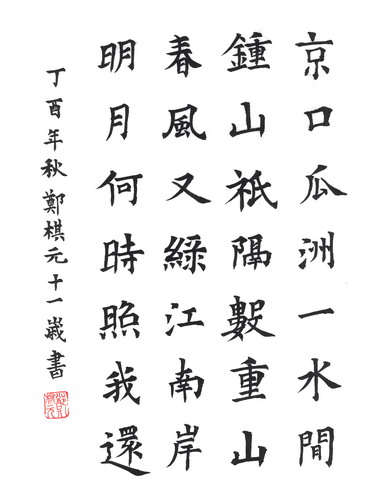 京口瓜洲一水間
鍾山祇隔數重山
春風又綠江南岸
明月何時照我還
丁酉年秋鄭棋元十一歲書